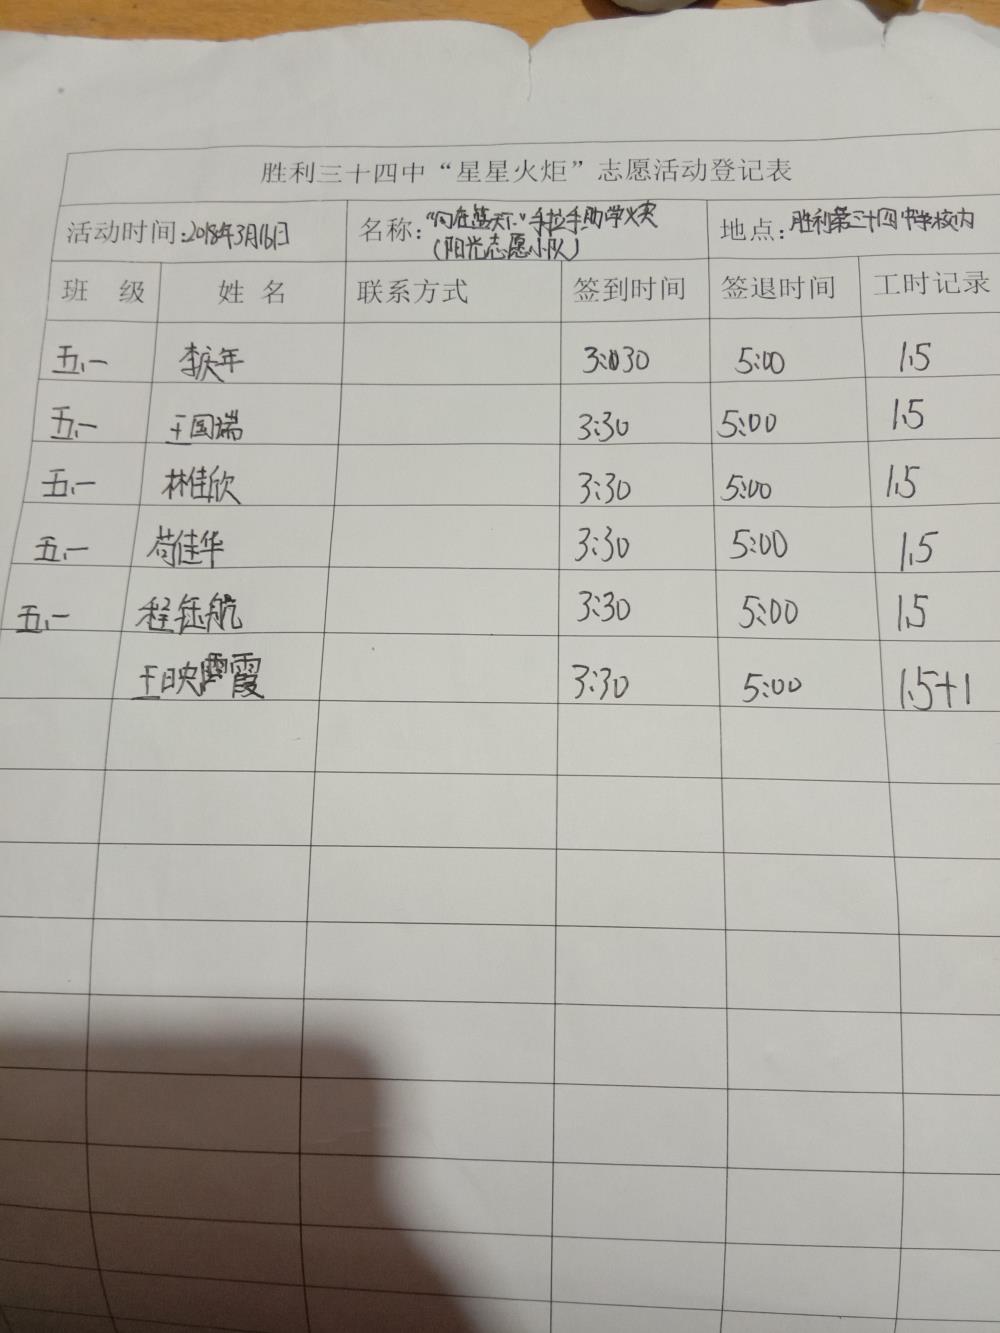 胜利三十四中“星星火炬”志愿活动登记表
活动时间:2018年3月16日 名称:“同在蓝天下”手拉手助学 地点:胜利第三十四中学校内
(阳光志愿小队)
班 级 姓 名 联系方式 签到时间 签退时间 工时记录
五.一 李庆年 3:030 5:00 1.5
五.一 王国瑞 3:30 5:00 1.5
五.一 林佳欣 3:30 5:00 1.5
五.一 苟佳华 3:30 5:00 1.5
五.一 程钰航 3:30 5:00 1.5
王映霞 3:30 5:00 1.5+1